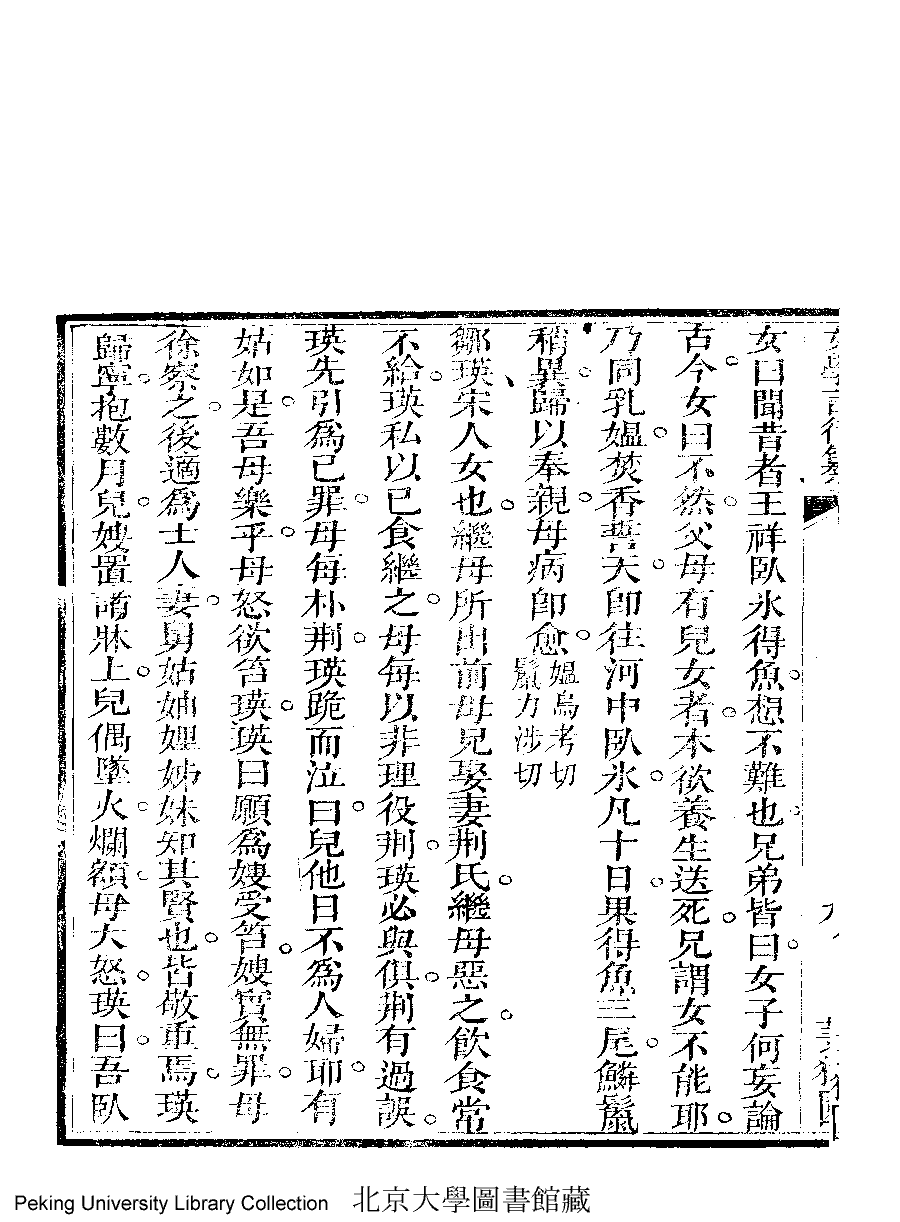 女曰聞昔者王祥臥氷得魚想不難也兄弟皆曰女子何妄論
古今女曰不然父母有兒女者本欲養生送死兄謂女不能耶
乃同乳媼焚香誓天卽往河中臥氷凡十日果得魚三尾鱗鬣
稍異歸以奉親母病卽愈媼烏考切鬣力涉切
鄒瑛宋人女也繼母所出前母兄娶妻荆氏繼母惡之飮食常
不給瑛私以已食繼之母每以非理役荆瑛必與俱荆有過誤
瑛先引爲已罪母每朴荆瑛跪而泣曰兒他日不爲人婦耶有
姑如是吾母樂乎母怒欲笞瑛瑛曰願爲嫂受笞嫂實無罪母
徐察之後適爲士人妻舅姑妯娌姊妹知其賢也皆敬重焉瑛
歸寧抱數月兒嫂置諸牀上兒偶墜火爛額母大怒瑛曰吾臥
Peking University Library Collection 北京大學圖書館藏